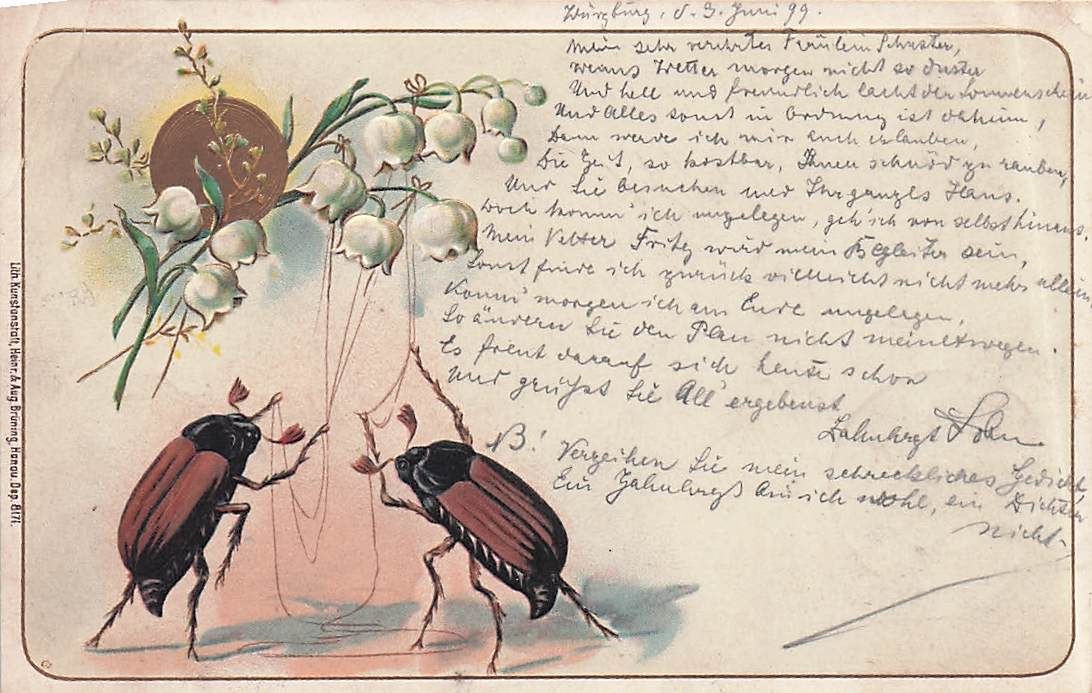 Würzburg, d. 3. Juni 99.
Mein sehr verehrtes Fräulein Schuster,
wenns Wetter morgen nicht so duster
Und hell und freundlich lacht der Sonnenschein
Und Alles sonst in Ordnung ist daheim,
Dann werde ich mir auch erlauben,
Die Zeit, so kostbar, Ihnen schnöd zu rauben,
Und Sie besuchen und Ihr ganzes Haus.
Doch komm' ich ungelegen, geh' ich von selbst hinaus.
Mein Vetter Fritz wird mein Begleiter sein,
Sonst finde ich zurück vielleicht nicht mehr allein
Komm' morgen ich am Ende ungelegen,
So ändern Sie den Plan nicht meinetwegen.
Es freut darauf sich heute schon
Und grüßt Sie All' ergebenst
Zahnarzt
NB! Verzeihen Sie mein schreckliches Gedicht
Ein Zahnarzt bin ich wohl, ein Dichter
nicht.
Lith. Kunstanstalt, Heinr. & Aug. Brüning, Hanau. Dep. 8171.